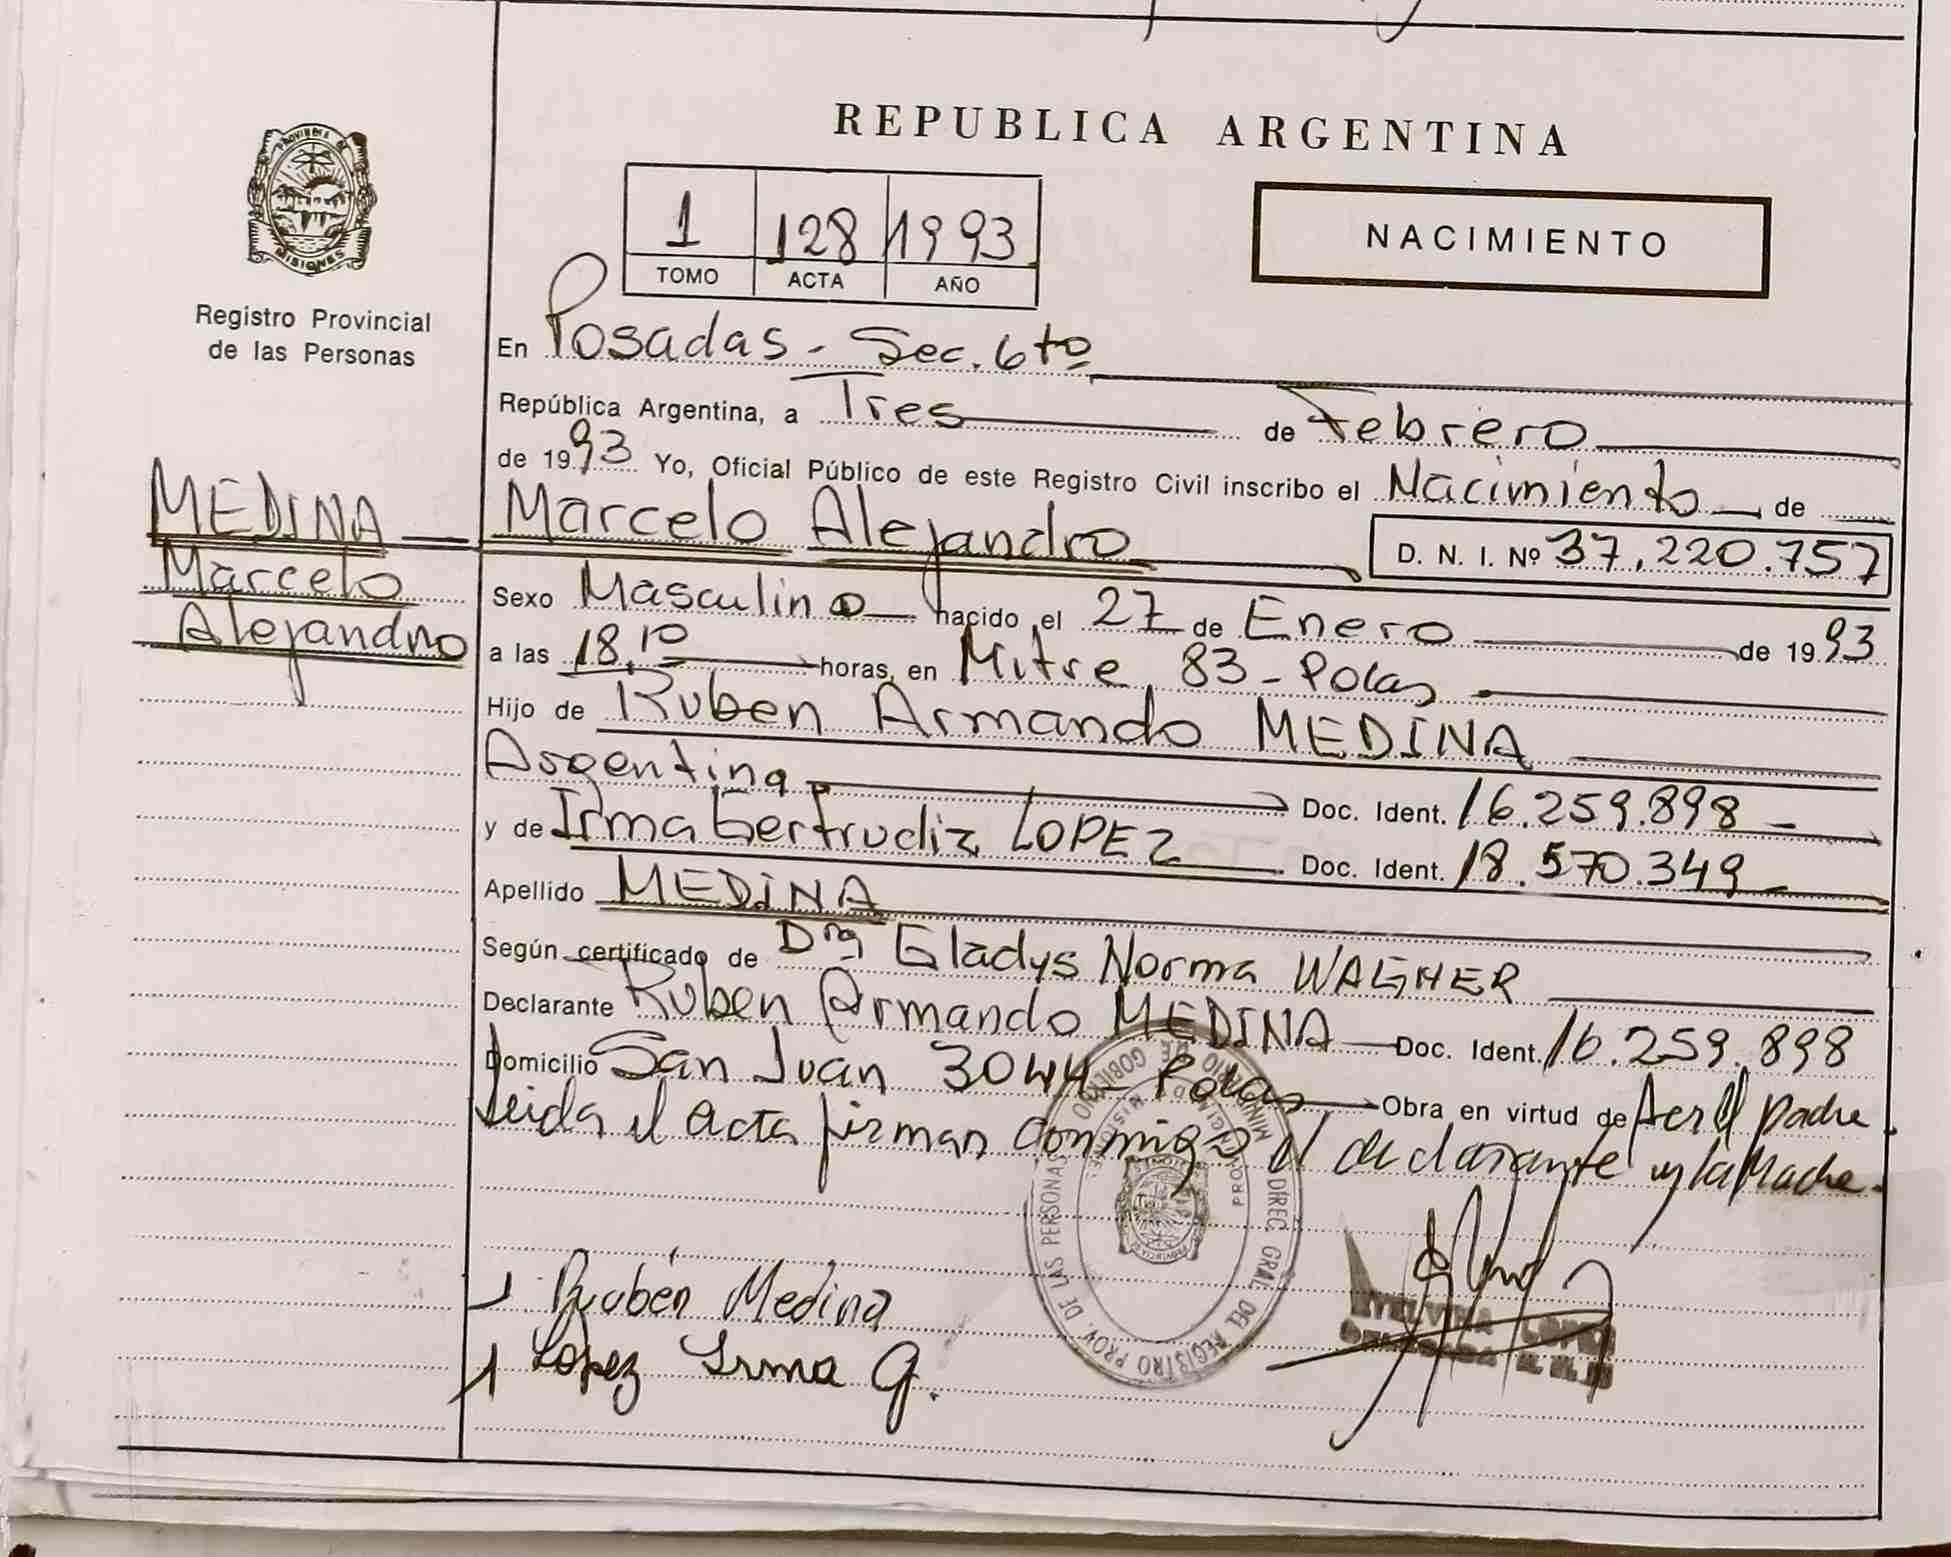 REPUBLICA ARGENTINA
PROVINCIA DE
MISIONES
Registro Provincial
de las Personas
1 128 1993
TOMO ACTA AÑO
NACIMIENTO
En Posadas - Sec. 6to
República Argentina, a Tres de Febrero
de 1993 Yo, Oficial Público de este Registro Civil inscribo el Nacimiento de
MEDINA
Marcelo
Alejandro
Marcelo Alejandro
D. N. I. Nº 37.220.757
Sexo Masculino nacido el 27 de Enero de 1993
a las 18,10 horas, en Mitre 83 - Pdas
Hijo de Ruben Armando MEDINA
Argentina Doc. Ident. 16.259.898 -
y de Irma Gertrudiz LOPEZ Doc. Ident. 18.570.349 -
Apellido MEDINA
Según certificado de Dra Gladys Norma WAGNER
Declarante Ruben Armando MEDINA Doc. Ident. 16.259.898
Domicilio San Juan 3044 - Pdas Obra en virtud de ser el padre
Leida el acta firman conmigo el declarante y la Madre.-
MINISTERIO DE GOBIERNO
DIREC. GRAL. DEL REGISTRO PROV. DE LAS PERSONAS
PROVINCIA DE MISIONES
Rubén Medina
López Irma G.
LOPEZ